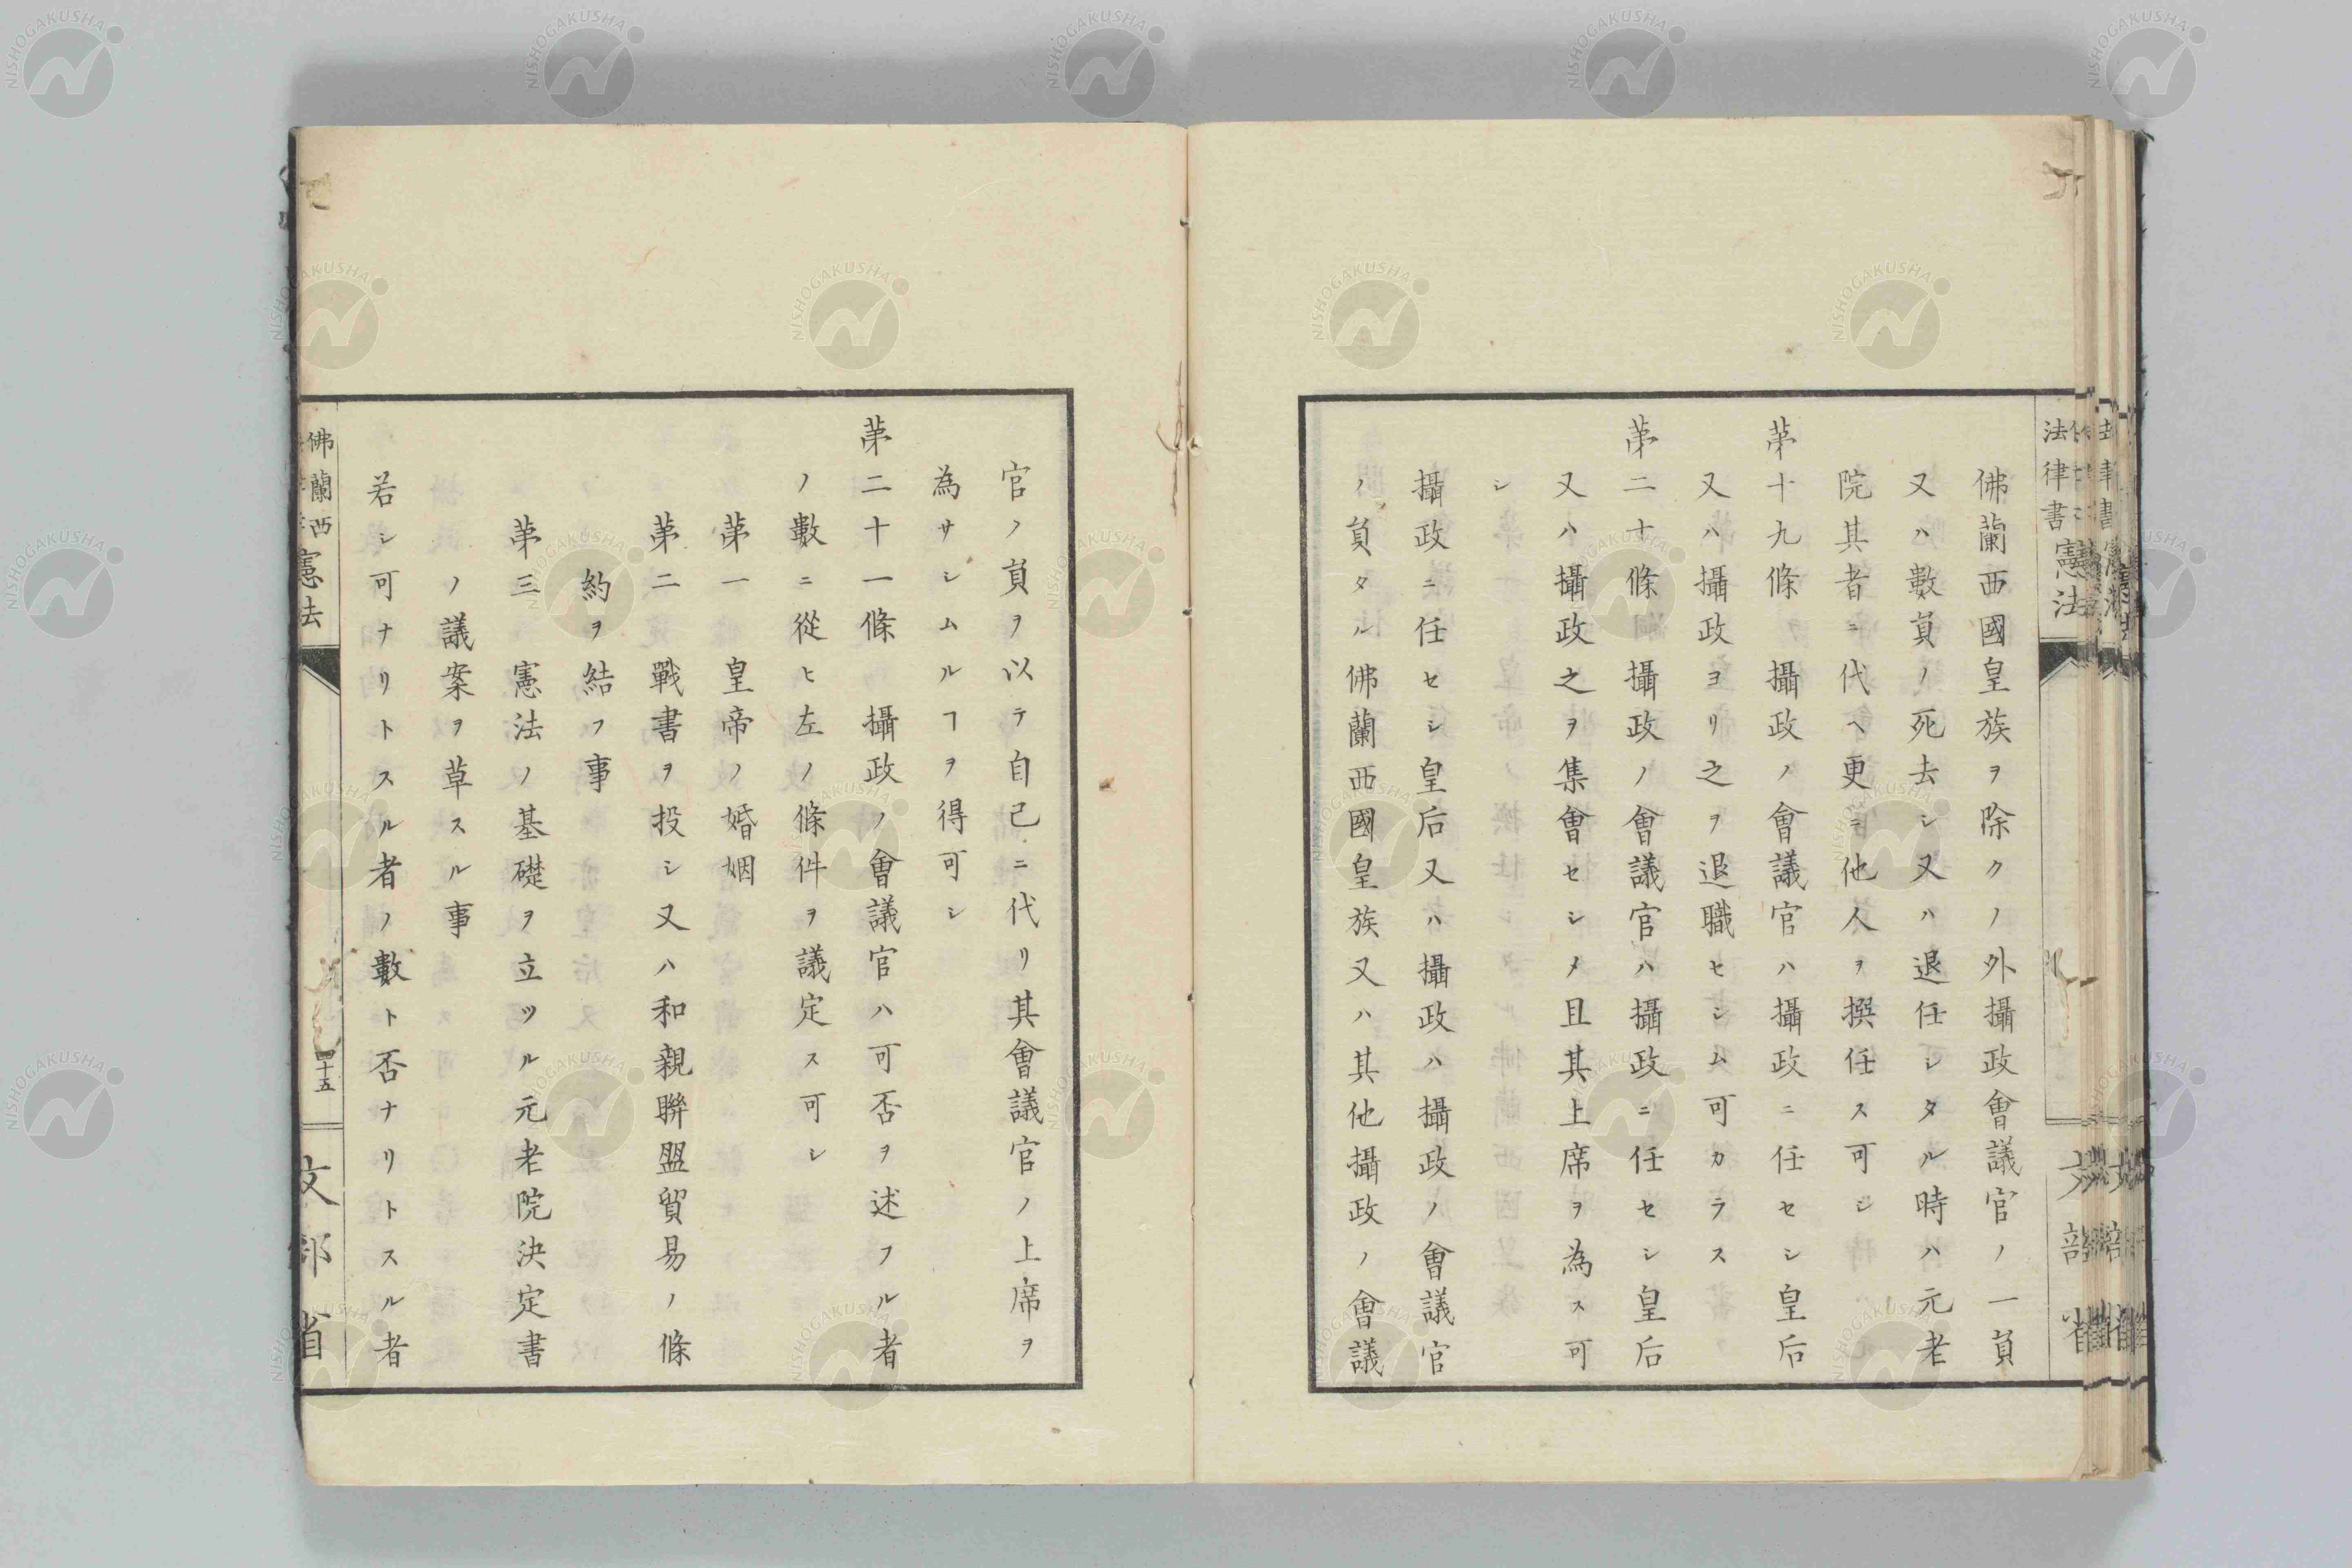 佛蘭西國皇族ヲ除クノ外攝政會議官ノ一員
又ハ數員ノ死去シ又ハ退任シタル時ハ元老
院其者ニ代ヘ更ニ他人ヲ撰任ス可シ
苐十九條　攝政ノ會議官ハ攝政ニ任セシ皇后
又ハ攝政ヨリ之ヲ退職セシム可カラス
苐二十條　攝政ノ會議官ハ攝政ニ任セシ皇后
又ハ攝政之ヲ集會セシメ且其上席ヲ為ス可
シ
攝政ニ任セシ皇后又ハ攝政ハ攝政ノ會議官
ノ員タル佛蘭西國皇族又ハ其他攝政ノ會議
官ノ員ヲ以テ自己ニ代リ其會議官ノ上席ヲ
為サシムルヿヲ得可シ
苐二十一條　攝政ノ會議官ハ可否ヲ述フル者
ノ數ニ從ヒ左ノ條件ヲ議定ス可シ
苐一　皇帝ノ婚姻
苐二　戰書ヲ投シ又ハ和親聯盟貿易ノ條
約ヲ結フ事
苐三　憲法ノ基礎ヲ立ツル元老院決定書
ノ議案ヲ草スル事
若シ可ナリトスル者ノ數ト否ナリトスル者
佛蘭西
憲法
十五
文部省
法律書
憲法
NISHOGAKUSHA